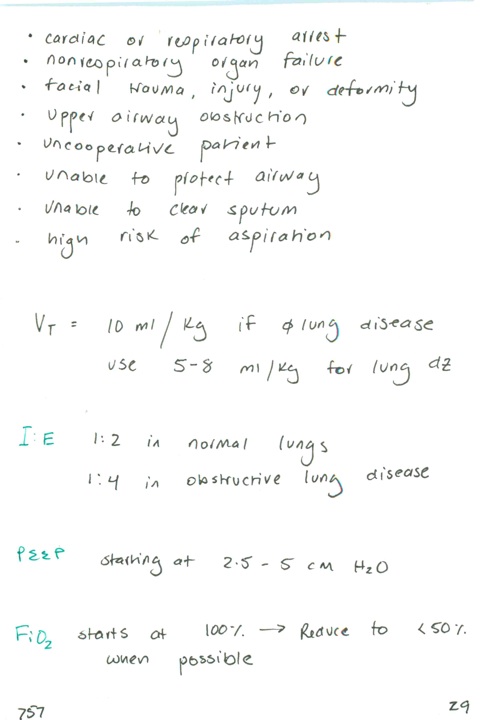 • cardiac or respiratory arrest
• nonrespiratory organ failure
• facial trauma, injury, or deformity
• upper airway obstruction
• uncooperative patient
• unable to protect airway
• unable to clear sputum
• high risk of aspiration
VT = 10 ml/kg if ϕ lung disease
use 5-8 ml/kg for lung dz
I:E 1:2 in normal lungs
1:4 in obstructive lung disease
PEEP starting at 2.5 - 5 cm H2O
FiO2 starts at 100% → Reduce to <50%
when possible
757 29